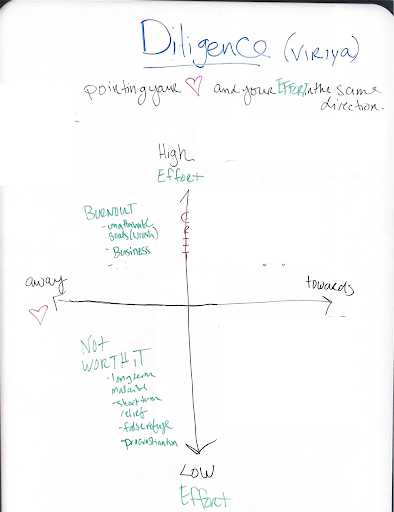 Diligence (VIRIYA)
pointing your ♡ and your EFFORT in the same
direction.
High
Effort
BURNOUT
- unattainable
goals (Wrosh)
- Business
GRIT
away
towards
NOT
WORTH IT
- long term
malaise
- short term
relief
- false refuge
- procrastination
LOW
Effort